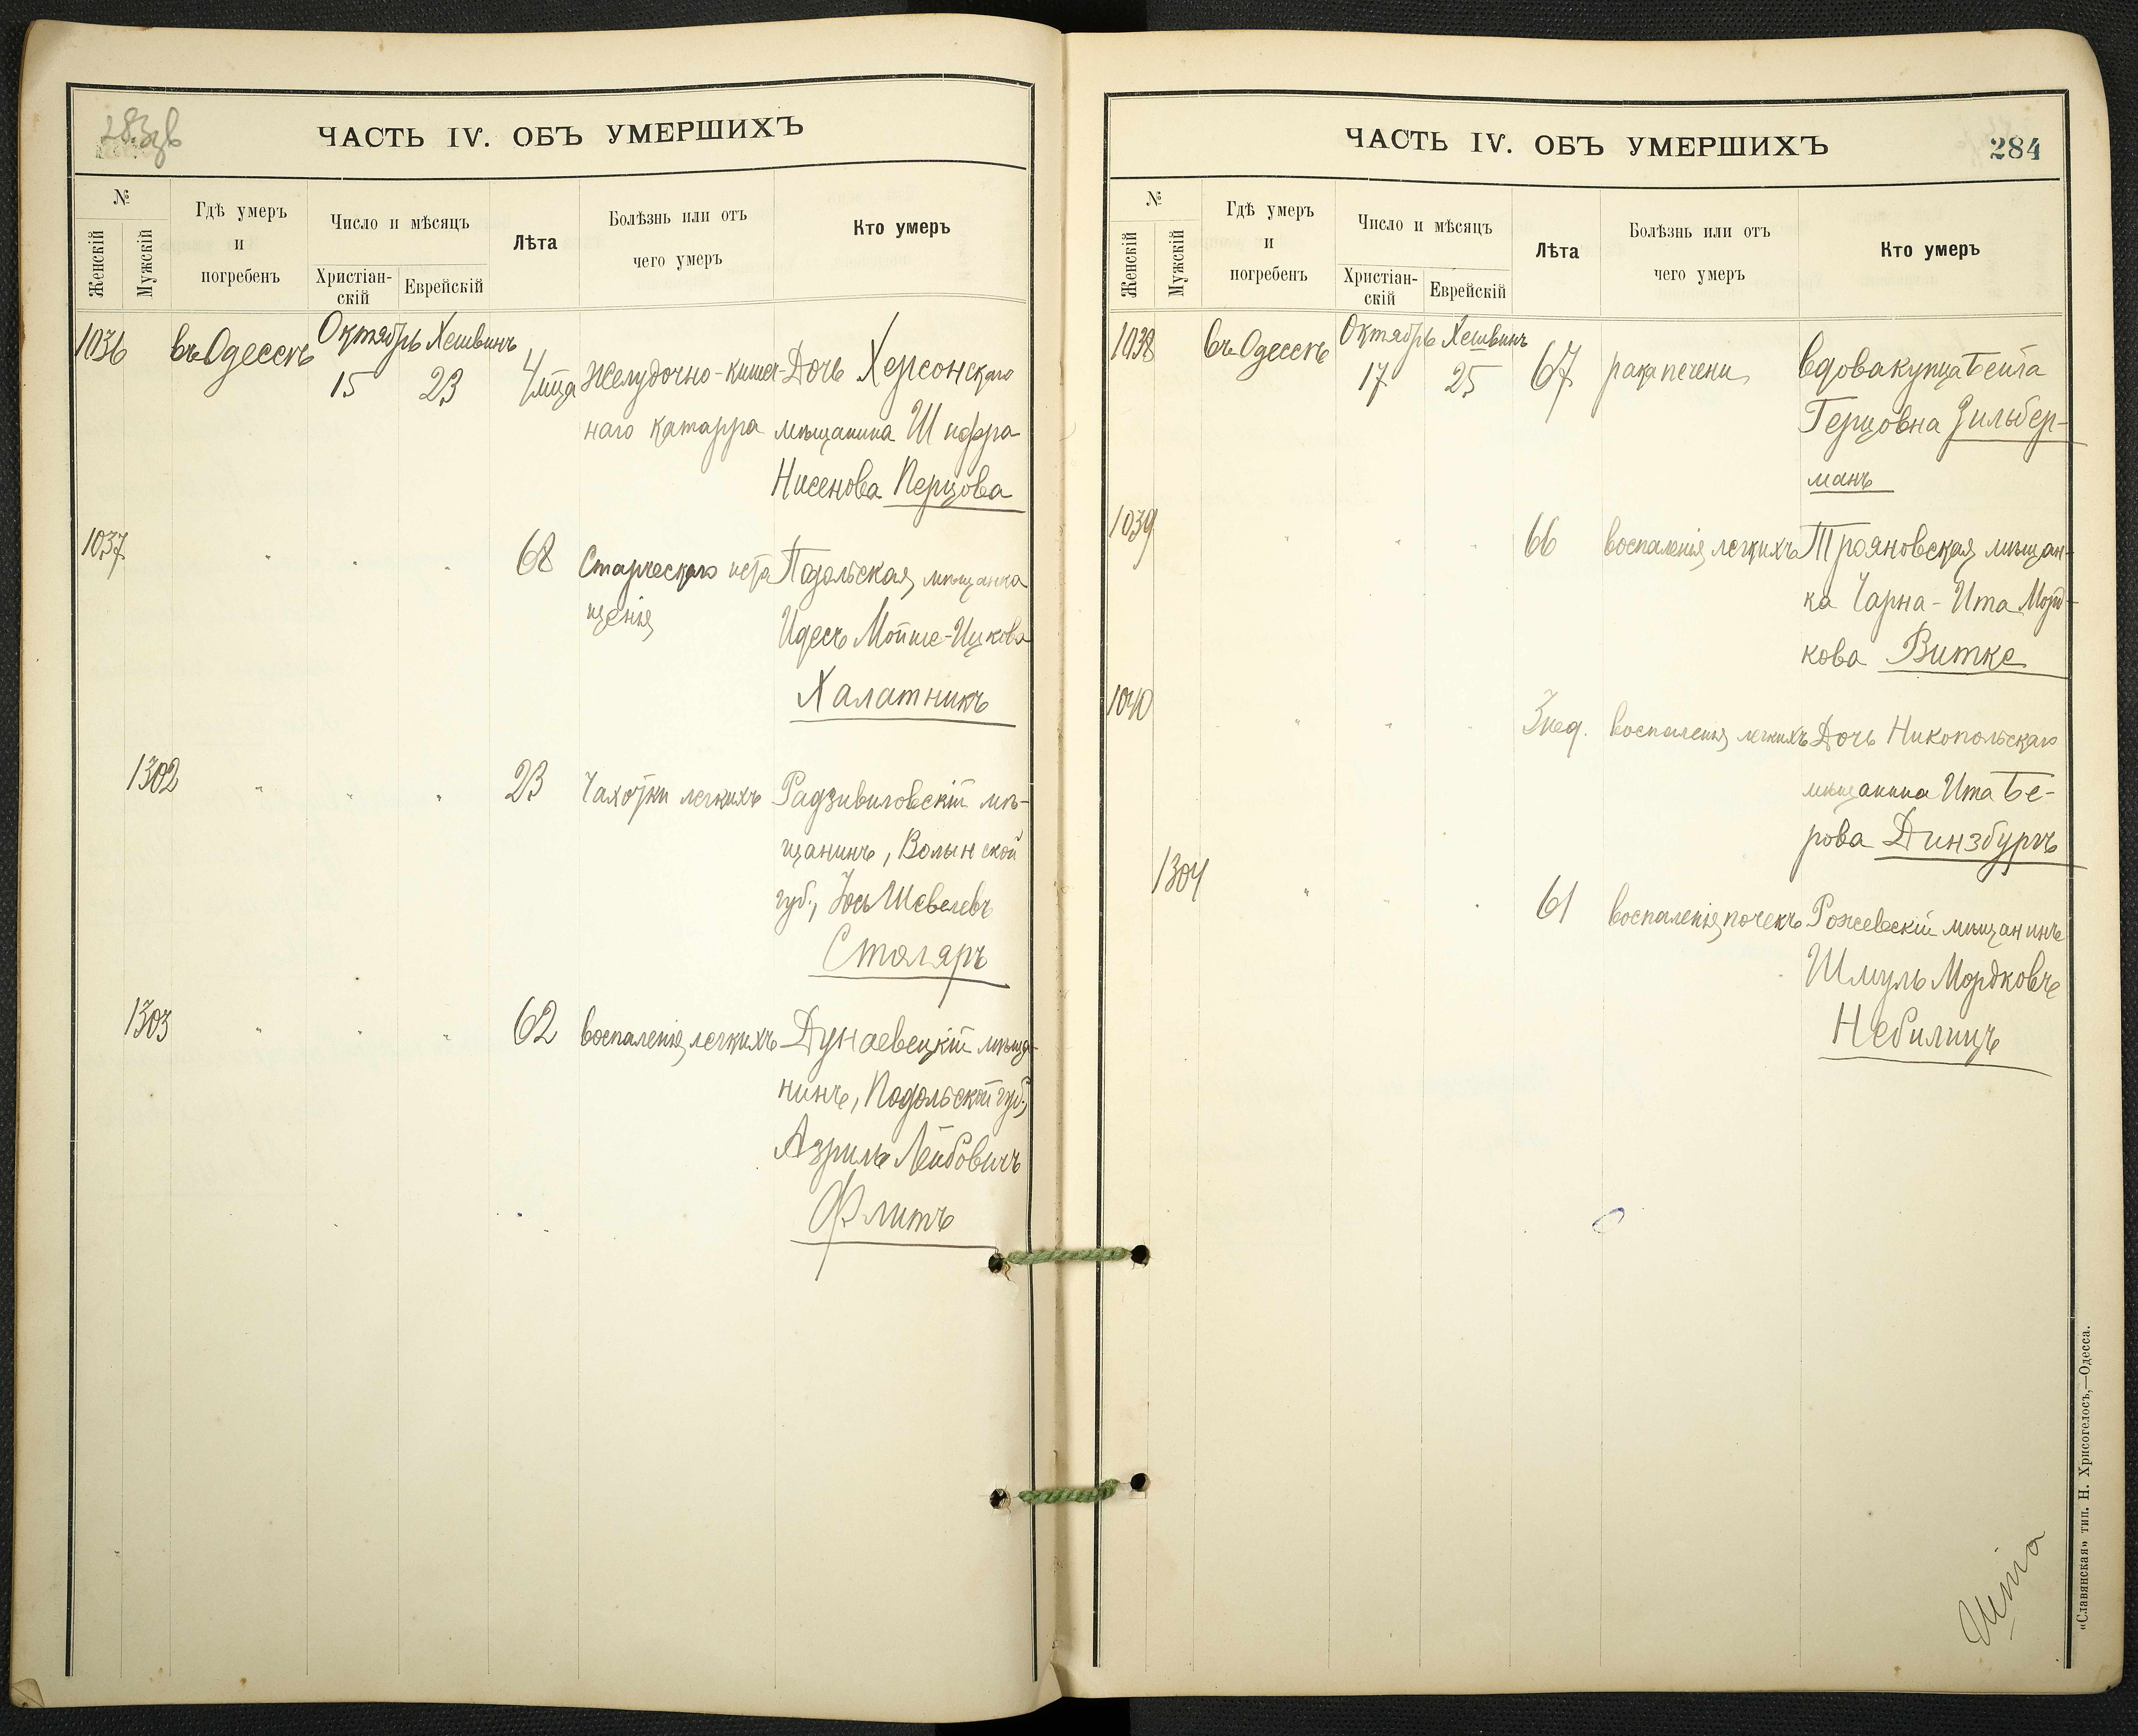 283об
ЧАСТЬ IV. ОБЪ УМЕРШИХЪ
№
Женскій
Мужскій
Гдѣ умеръ
и
погребенъ
Число и мѣсяцъ
Христіан-
скій
Еврейскій
Лѣта
Болѣзнь или отъ
чего умеръ
Кто умеръ
1036 въ Одессѣ Октябрь Хешвинъ
15 23 4 мѣца Желудочно-кишеч- Дочь Херсонскаго
наго катарра мѣщанина Шифра
Нисенова Перцова
1037 " " " 68 Старческаго исто Подольская мѣщанка
щенія Идесъ Мойше-Ицкова
Халатникъ
1302 " " " 23 Чахотки легкихъ Радзивиловскій мѣ-
щанинъ, Волынской
губ., Іось Шевелевъ
Столяръ
1303 " " " 62 воспаленія легкихъ Дунаевецкій мѣща-
нинъ, Подольской губ.,
Азриль Лейбовичъ
Флитъ
ЧАСТЬ IV. ОБЪ УМЕРШИХЪ
284
№
Женскій
Мужскій
Гдѣ умеръ
и
погребенъ
Число и мѣсяцъ
Христіан-
скій
Еврейскій
Лѣта
Болѣзнь или отъ
чего умеръ
Кто умеръ
1038 въ Одессѣ Октябрь Хешвинъ
17 25 67 рака печени вдова купца Бейла
Герцовна Зильбер-
манъ
1039 " " " 66 воспаленія легкихъ Трояновская мѣщан-
ка Чарна-Ита Морд-
кова Витке
1040 " " " 3 нед. воспаленія легкихъ Дочь Никопольскаго
мѣщанина Ита Бе-
рова Динзбургъ
1304 " " " 61 воспаленія почекъ Рожевскій мѣщанинъ
Шмуль Мордковъ
Небилицъ
«Славянская» тип. Н. Хрисогелосъ,—Одесса.